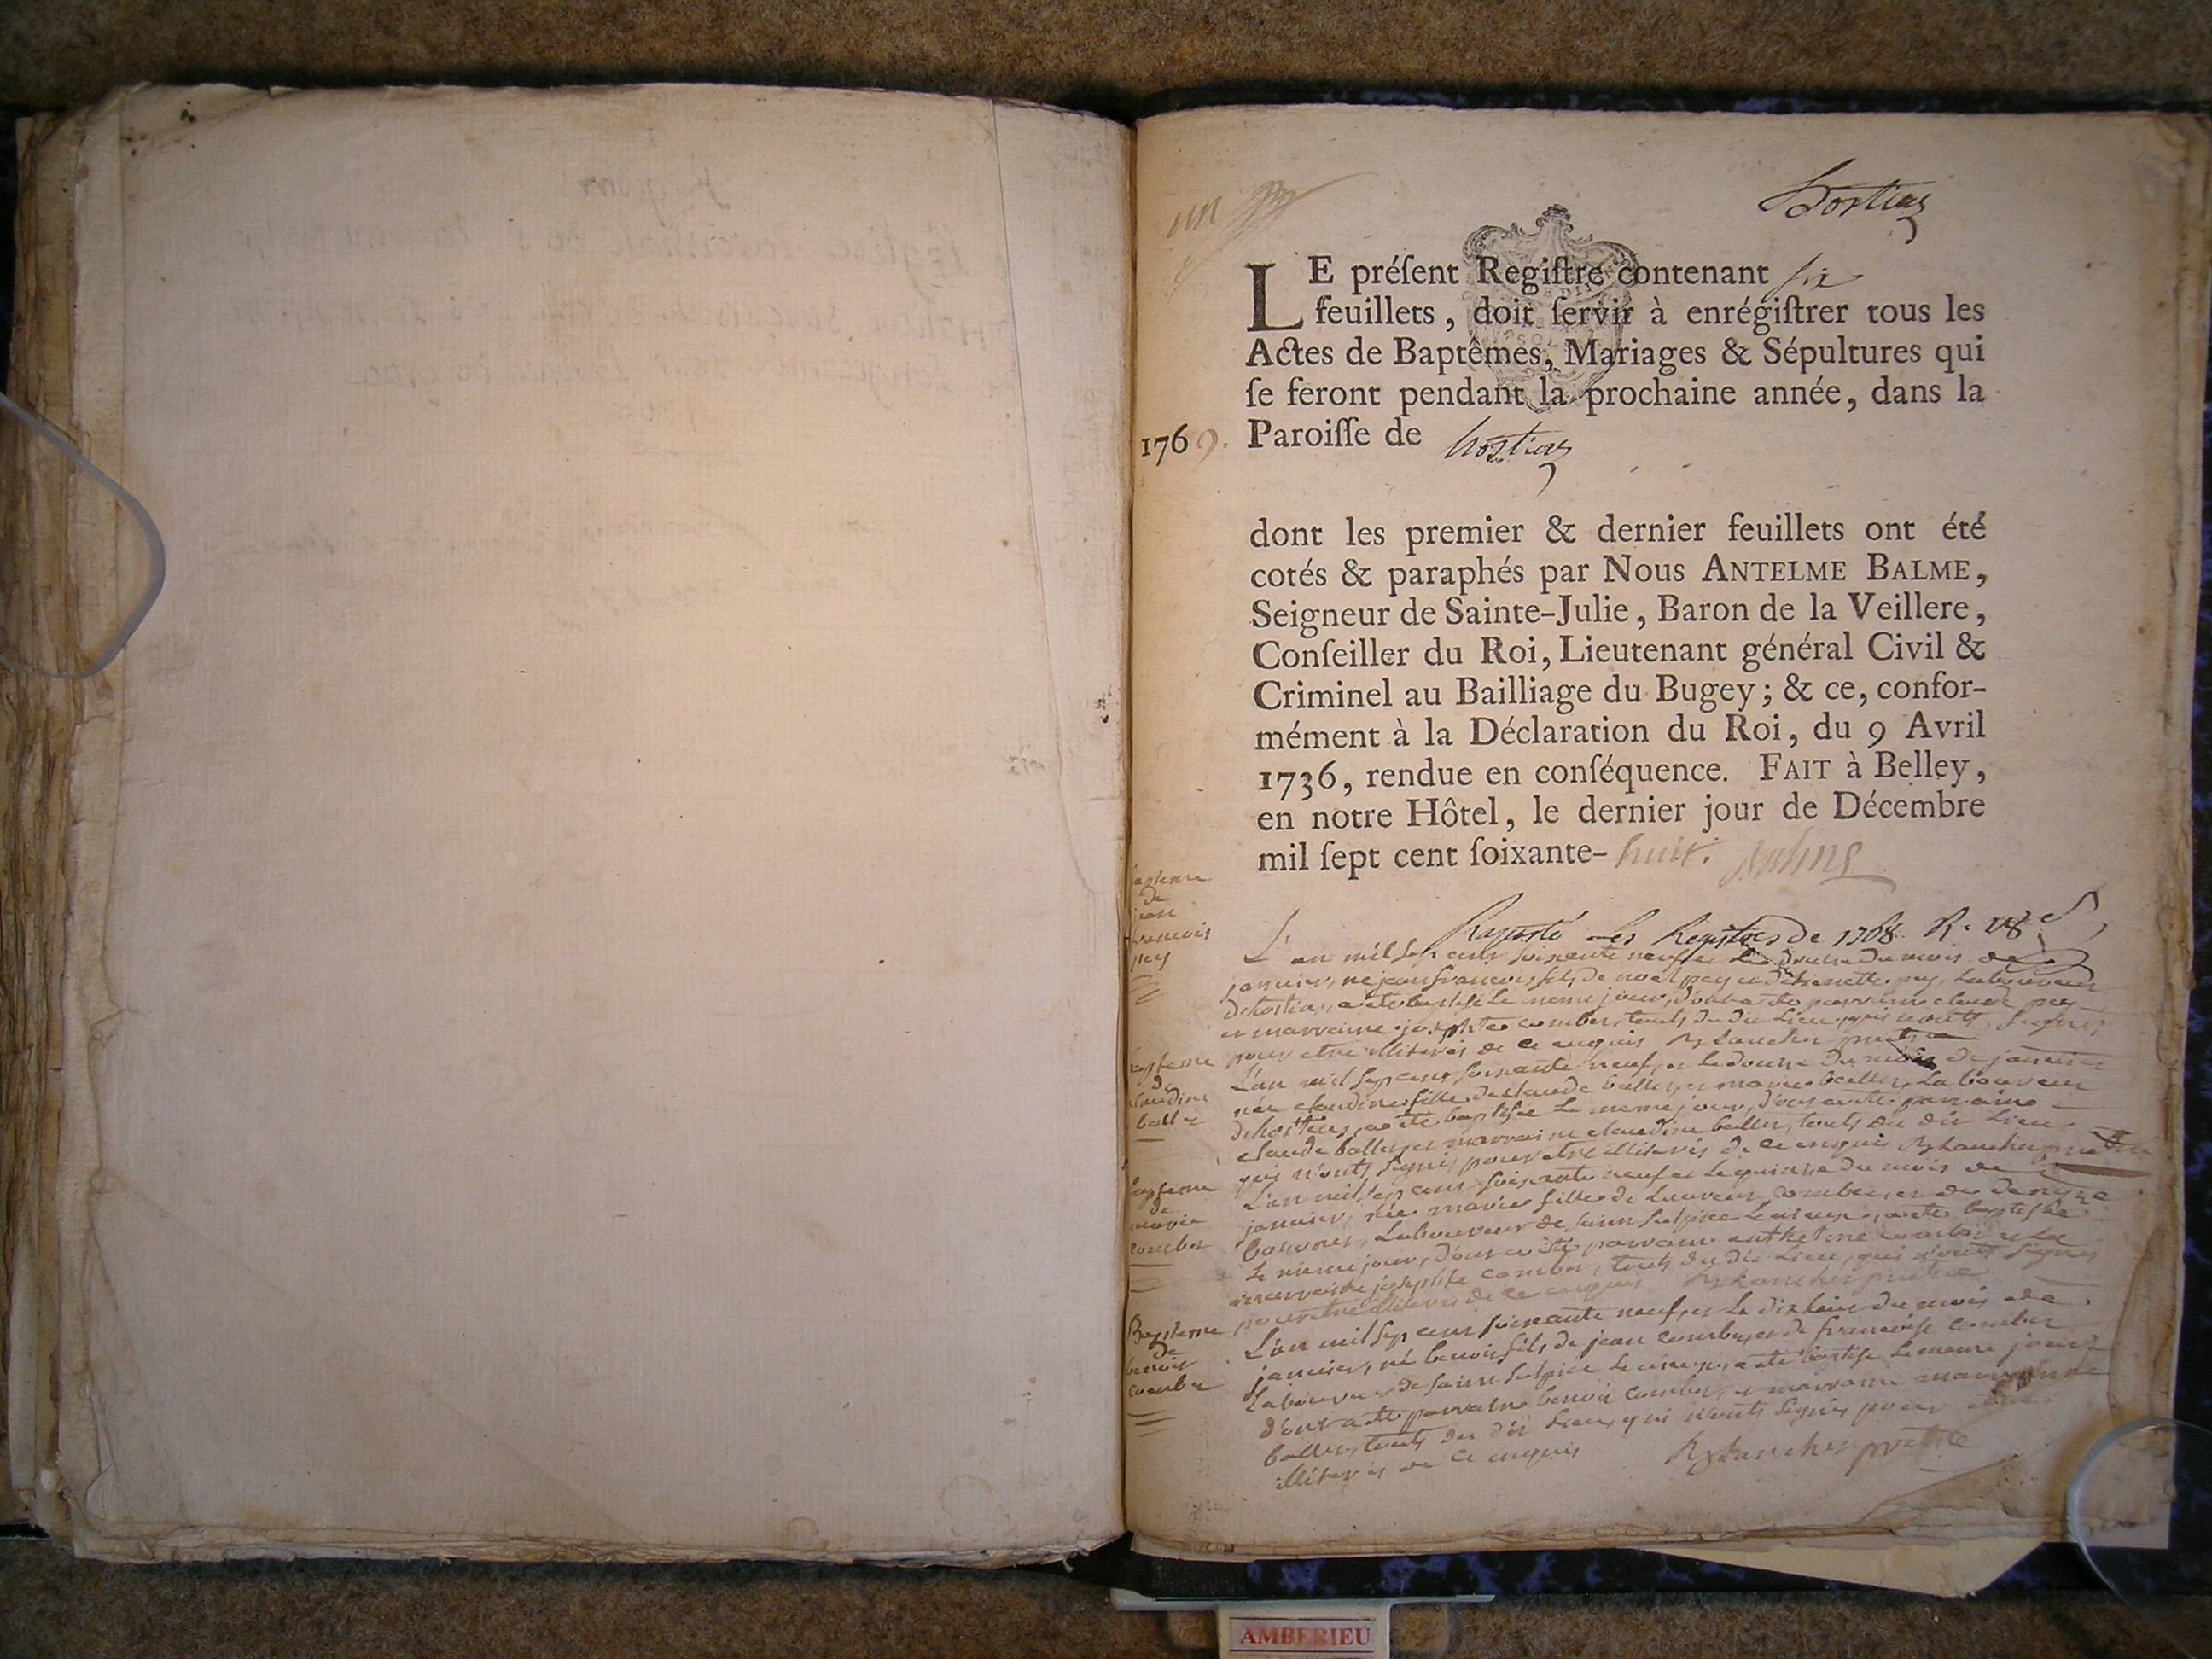 un
Hostiaz
LE préſent Regiſtre contenant six
feuillets, doit ſervir à enrégiſtrer tous les
Actes de Baptêmes, Mariages & Sépultures qui
ſe feront pendant la prochaine année, dans la
1769. Paroiſſe de hostiaz
dont les premier & dernier feuillets ont été
cotés & paraphés par Nous ANTELME BALME,
Seigneur de Sainte-Julie, Baron de la Veillere,
Conſeiller du Roi, Lieutenant général Civil &
Criminel au Bailliage du Bugey; & ce, confor-
mément à la Déclaration du Roi, du 9 Avril
1736, rendue en conſéquence. FAIT à Belley,
en notre Hôtel, le dernier jour de Décembre
mil ſept cent ſoixante- huit. Balme
Raporté les Registres de 1768
bapteme
de
jean
francois
pey
L'an mil sept cent soixante neuf et le douse du mois de
janvier, né jean francois fils de noel pey et pey, laboureur
d'hostias, a été baptisé le meme jour, dont a été parrain claude pey
et marraine josephte combet, touts du dit lieu qui n'onts signés
pour etre illiterés de ce enquis prêtre
bapteme
de
claudine
ballet
L'an mil sept cent soixante neuf, et le douse du mois de janvier
née claudine fille de claude ballet, et marie ballet, laboureur
d'hostias, a été baptisée le meme jour, dont a été parraine
claude ballet, et marraine claudine ballet, touts du dit lieu
qui n'onts signés pour etre illiterés de ce enquis prêtre
bapteme
de
marie
combet
L'an mil sept cent soixante neuf et le quinse du mois de
janvier, née marie fille de laurent combet, et de
laboureur de saint sulpice le vieux, a été baptisée
le meme jour, dont a été parrain anthelme combet et la
marraine josephte combet, touts du dit lieu, qui n'onts signés
pour etre illiterés de ce enquis prêtre
Bapteme
de
benoit
combet
L'an mil sept cent soixante neuf, et le dix huit du mois de
janvier, né benoit fils de jean combet, et de francoise combet
laboureur de saint sulpice le vieux, a été baptisé le meme jour
dont a été parraine benoit combet, et marraine
ballet, touts du dit lieu, qui n'onts signés pour etre
illiterés de ce enquis prêtre
AMBERIEU